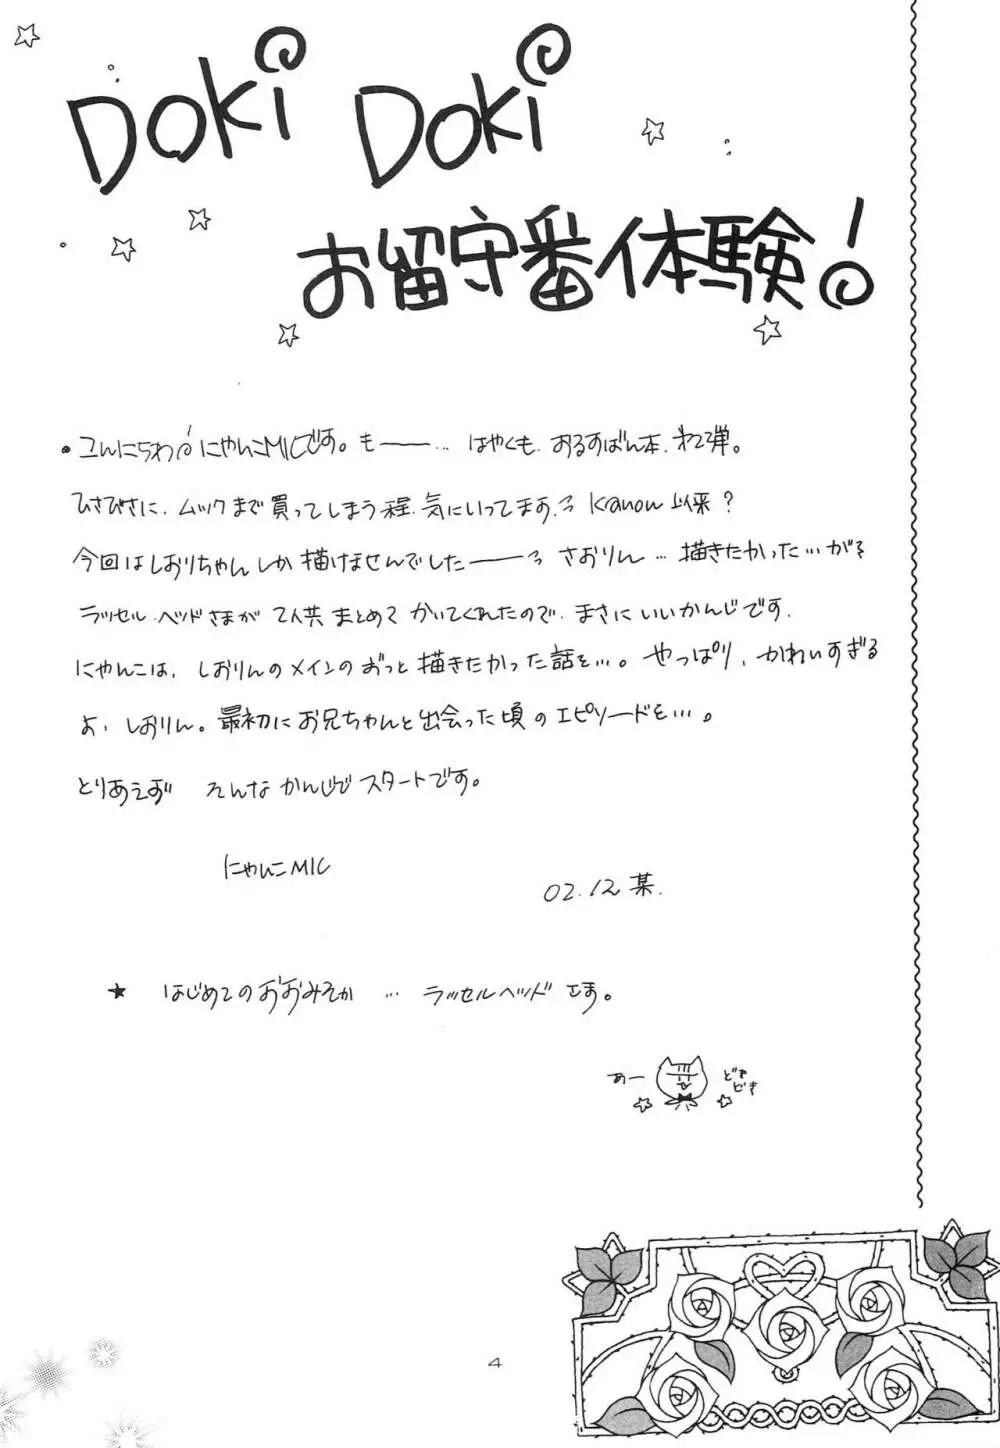 DOKi DOKi
お留守番体験!
• こんにちわ!にゃんこMICです。もーー… はやくも、おるすばん本、第2弾。
ひさびさに、ムックまで買ってしまう程、気にいってます、っ Kanon以来?
今回はしおりちゃんしか描けませんでしたーーっ さおりん…描きたかった…が
ラッセル・ヘッドさまが 2人共 まとめて かいてくれたので、まさにいいかんじです。
にゃんこは、しおりんのメインのずっと描きたかった話を…。やっぱり、かわいすぎる
よ、しおりん。最初にお兄ちゃんと出会った頃のエピソードを…。
とりあえず そんな かんじで スタートです。
にゃんこMIC
02.12 某.
★ はじめてのおおみそか … ラッセルヘッド さま。
あー
どき
どき
4